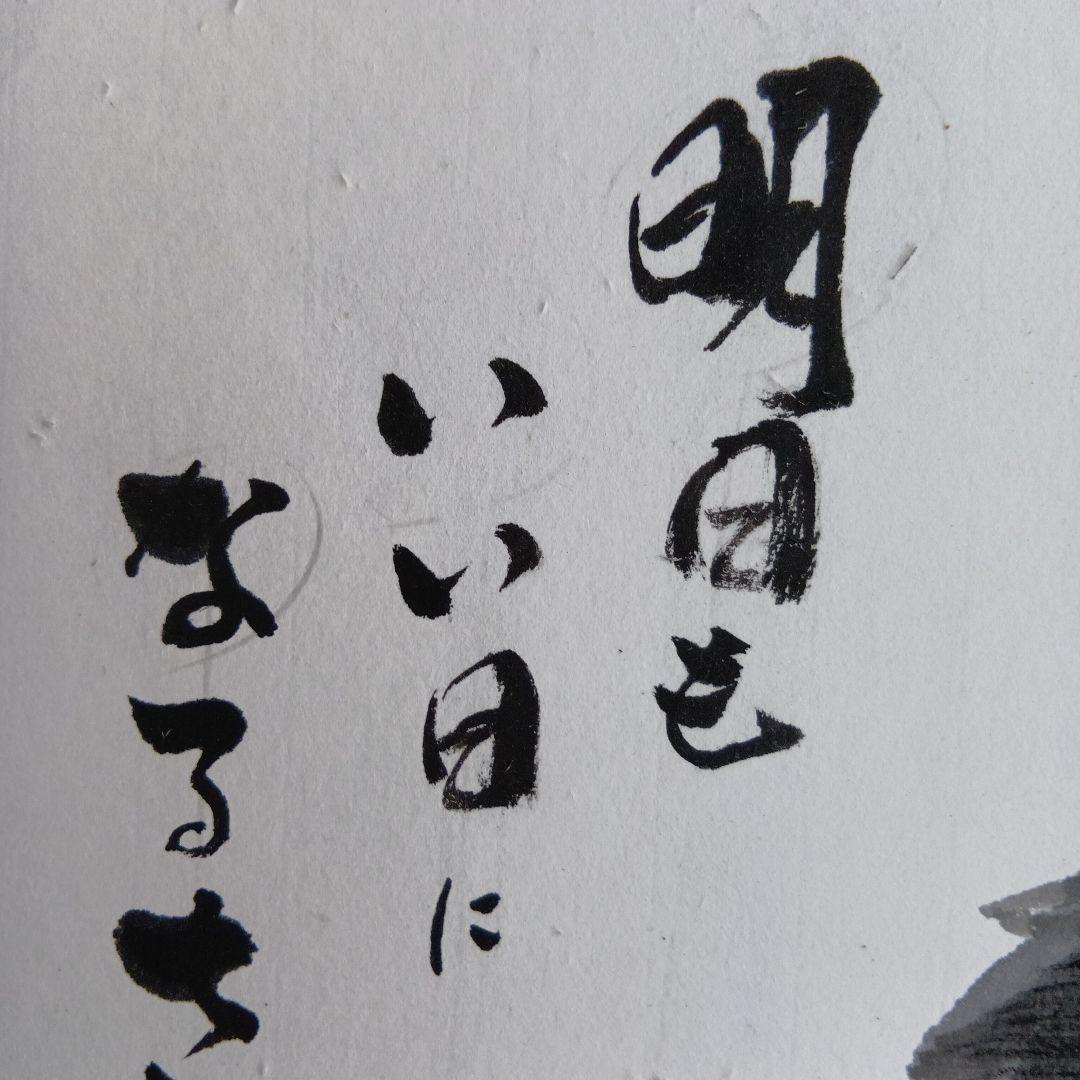 明日も
いい日に
なるさ